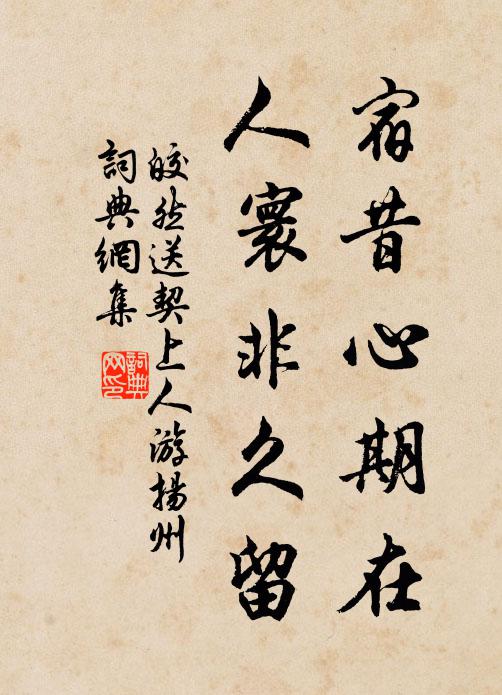 宿昔心期在
人寰非久留
皎然送契上人游揚州
詞典網集
詞典網印